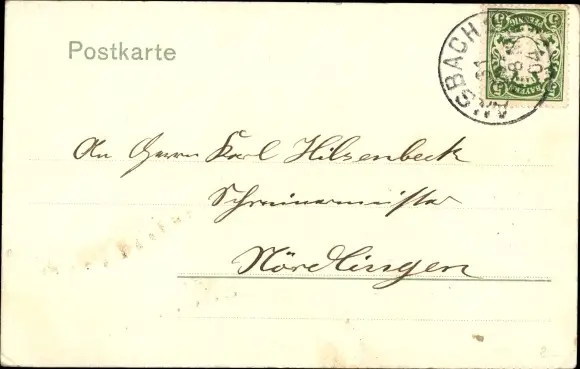 Postkarte
ANSBACH
5 PFENNIG 5
BAYERN
An Herrn Karl Hilsenbeck
Schreinermeister
Nördlingen